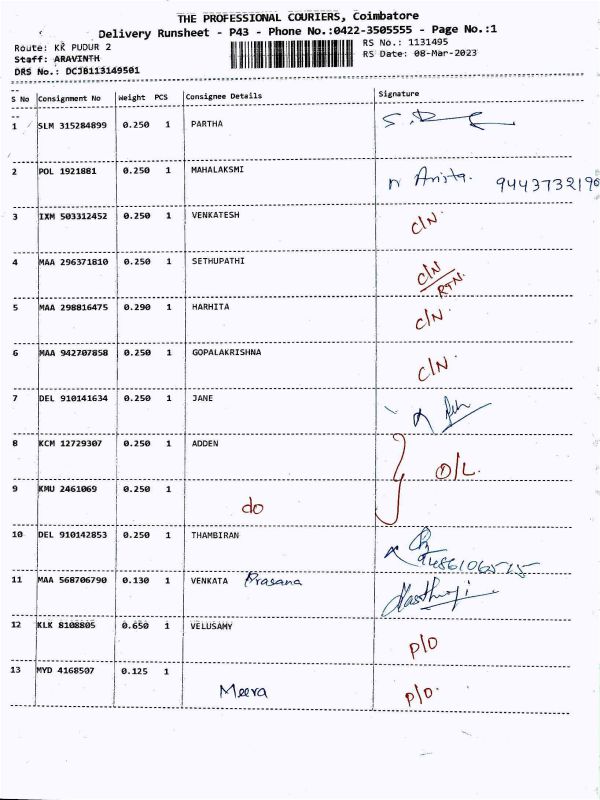 THE PROFESSIONAL COURIERS, Coimbatore
Delivery Runsheet - P43 - Phone No.:0422-3505555 - Page No.:1
Route: KK PUDUR 2 RS No.: 1131495
Staff: ARAVINTH RS Date: 08-Mar-2023
DRS No.: DCJ8113149501
S No Consignment No Weight PCS Consignee Details Signature
1 SLM 315284899 0.250 1 PARTHA
2 POL 1921881 0.250 1 MAHALAKSMI Anista. 9443732190
3 IXM 503312452 0.250 1 VENKATESH C/N.
4 MAA 296371810 0.250 1 SETHUPATHI C/N
RTN.
5 MAA 298816475 0.290 1 HARHITA C/N.
6 MAA 942707858 0.250 1 GOPALAKRISHNA C/N.
7 DEL 910141634 0.250 1 JANE
8 KCM 12729307 0.250 1 ADDEN O/L.
9 KMU 2461069 0.250 1 do
10 DEL 910142853 0.250 1 THAMBIRAN
9486106515
11 MAA 568706790 0.130 1 VENKATA Prasana
12 KLK 8108805 0.650 1 VELUSAMY P/O
13 MYD 4168507 0.125 1 Meera P/O.